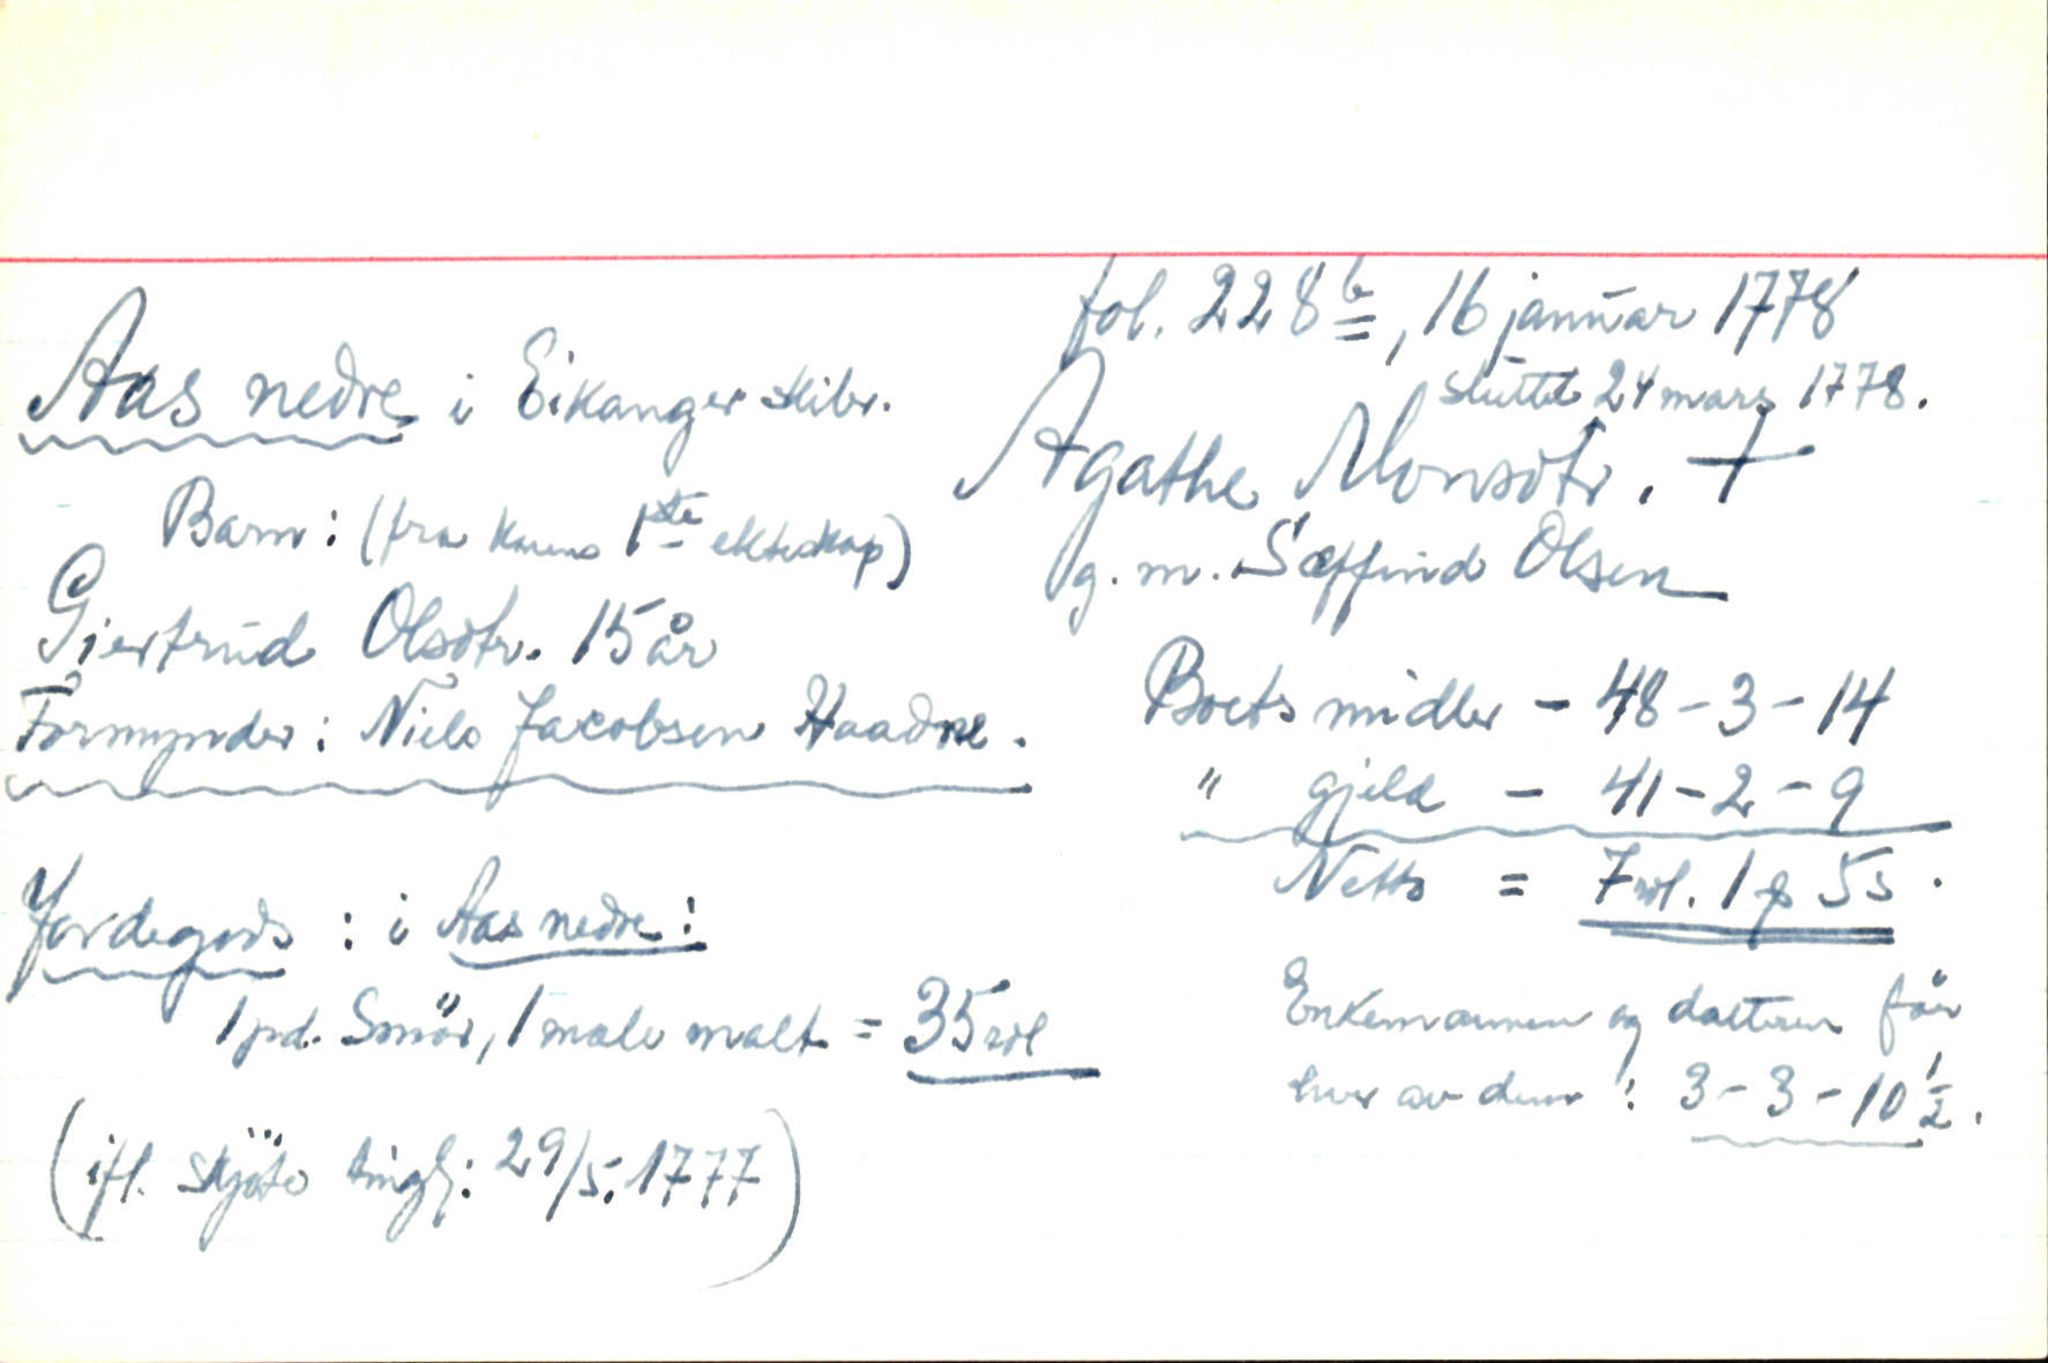 fol. 228 b, 16 januar 1778
sluttet 24 mars 1778.
Aas nedre i Eikanger skibr.
Agathe Monsdtr. +
g. m. Sæffind Olsen
Barn: (fra konens 1ste ekteskap)
Giertrud Olsdtr. 15 år
Formynder: Niels Jacobsen Haadne.
Boets midler - 48 - 3 - 14
" gjeld - 41 - 2 - 9
Netto = 7 rdl. 1 ƒ 5 s.
Jordegods: i Aas nedre:
1 pd. Smör, 1 mele malt = 35 rdl
(ifl. skjöte tingl: 29/5. 1777)
Enkemannen og datteren får
hver av dem: 3 - 3 - 10 1/2.